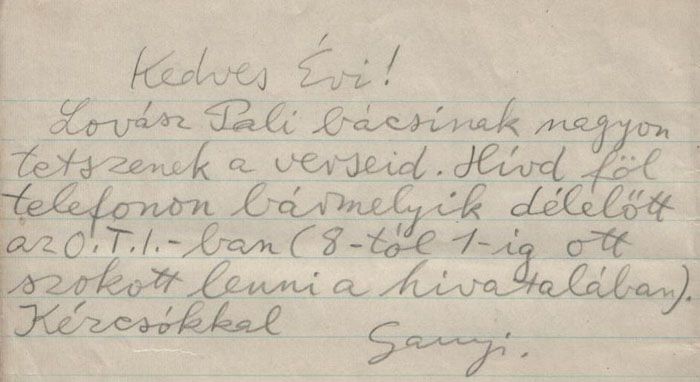 Kedves Évi!
Lovász Pali bácsinak nagyon
tetszenek a verseid. Hívd föl
telefonon bármelyik délelőtt
az O.T.I.-ban (8-tól 1-ig ott
szokott lenni a hivatalában).
Kézcsókkal
Sanyi.